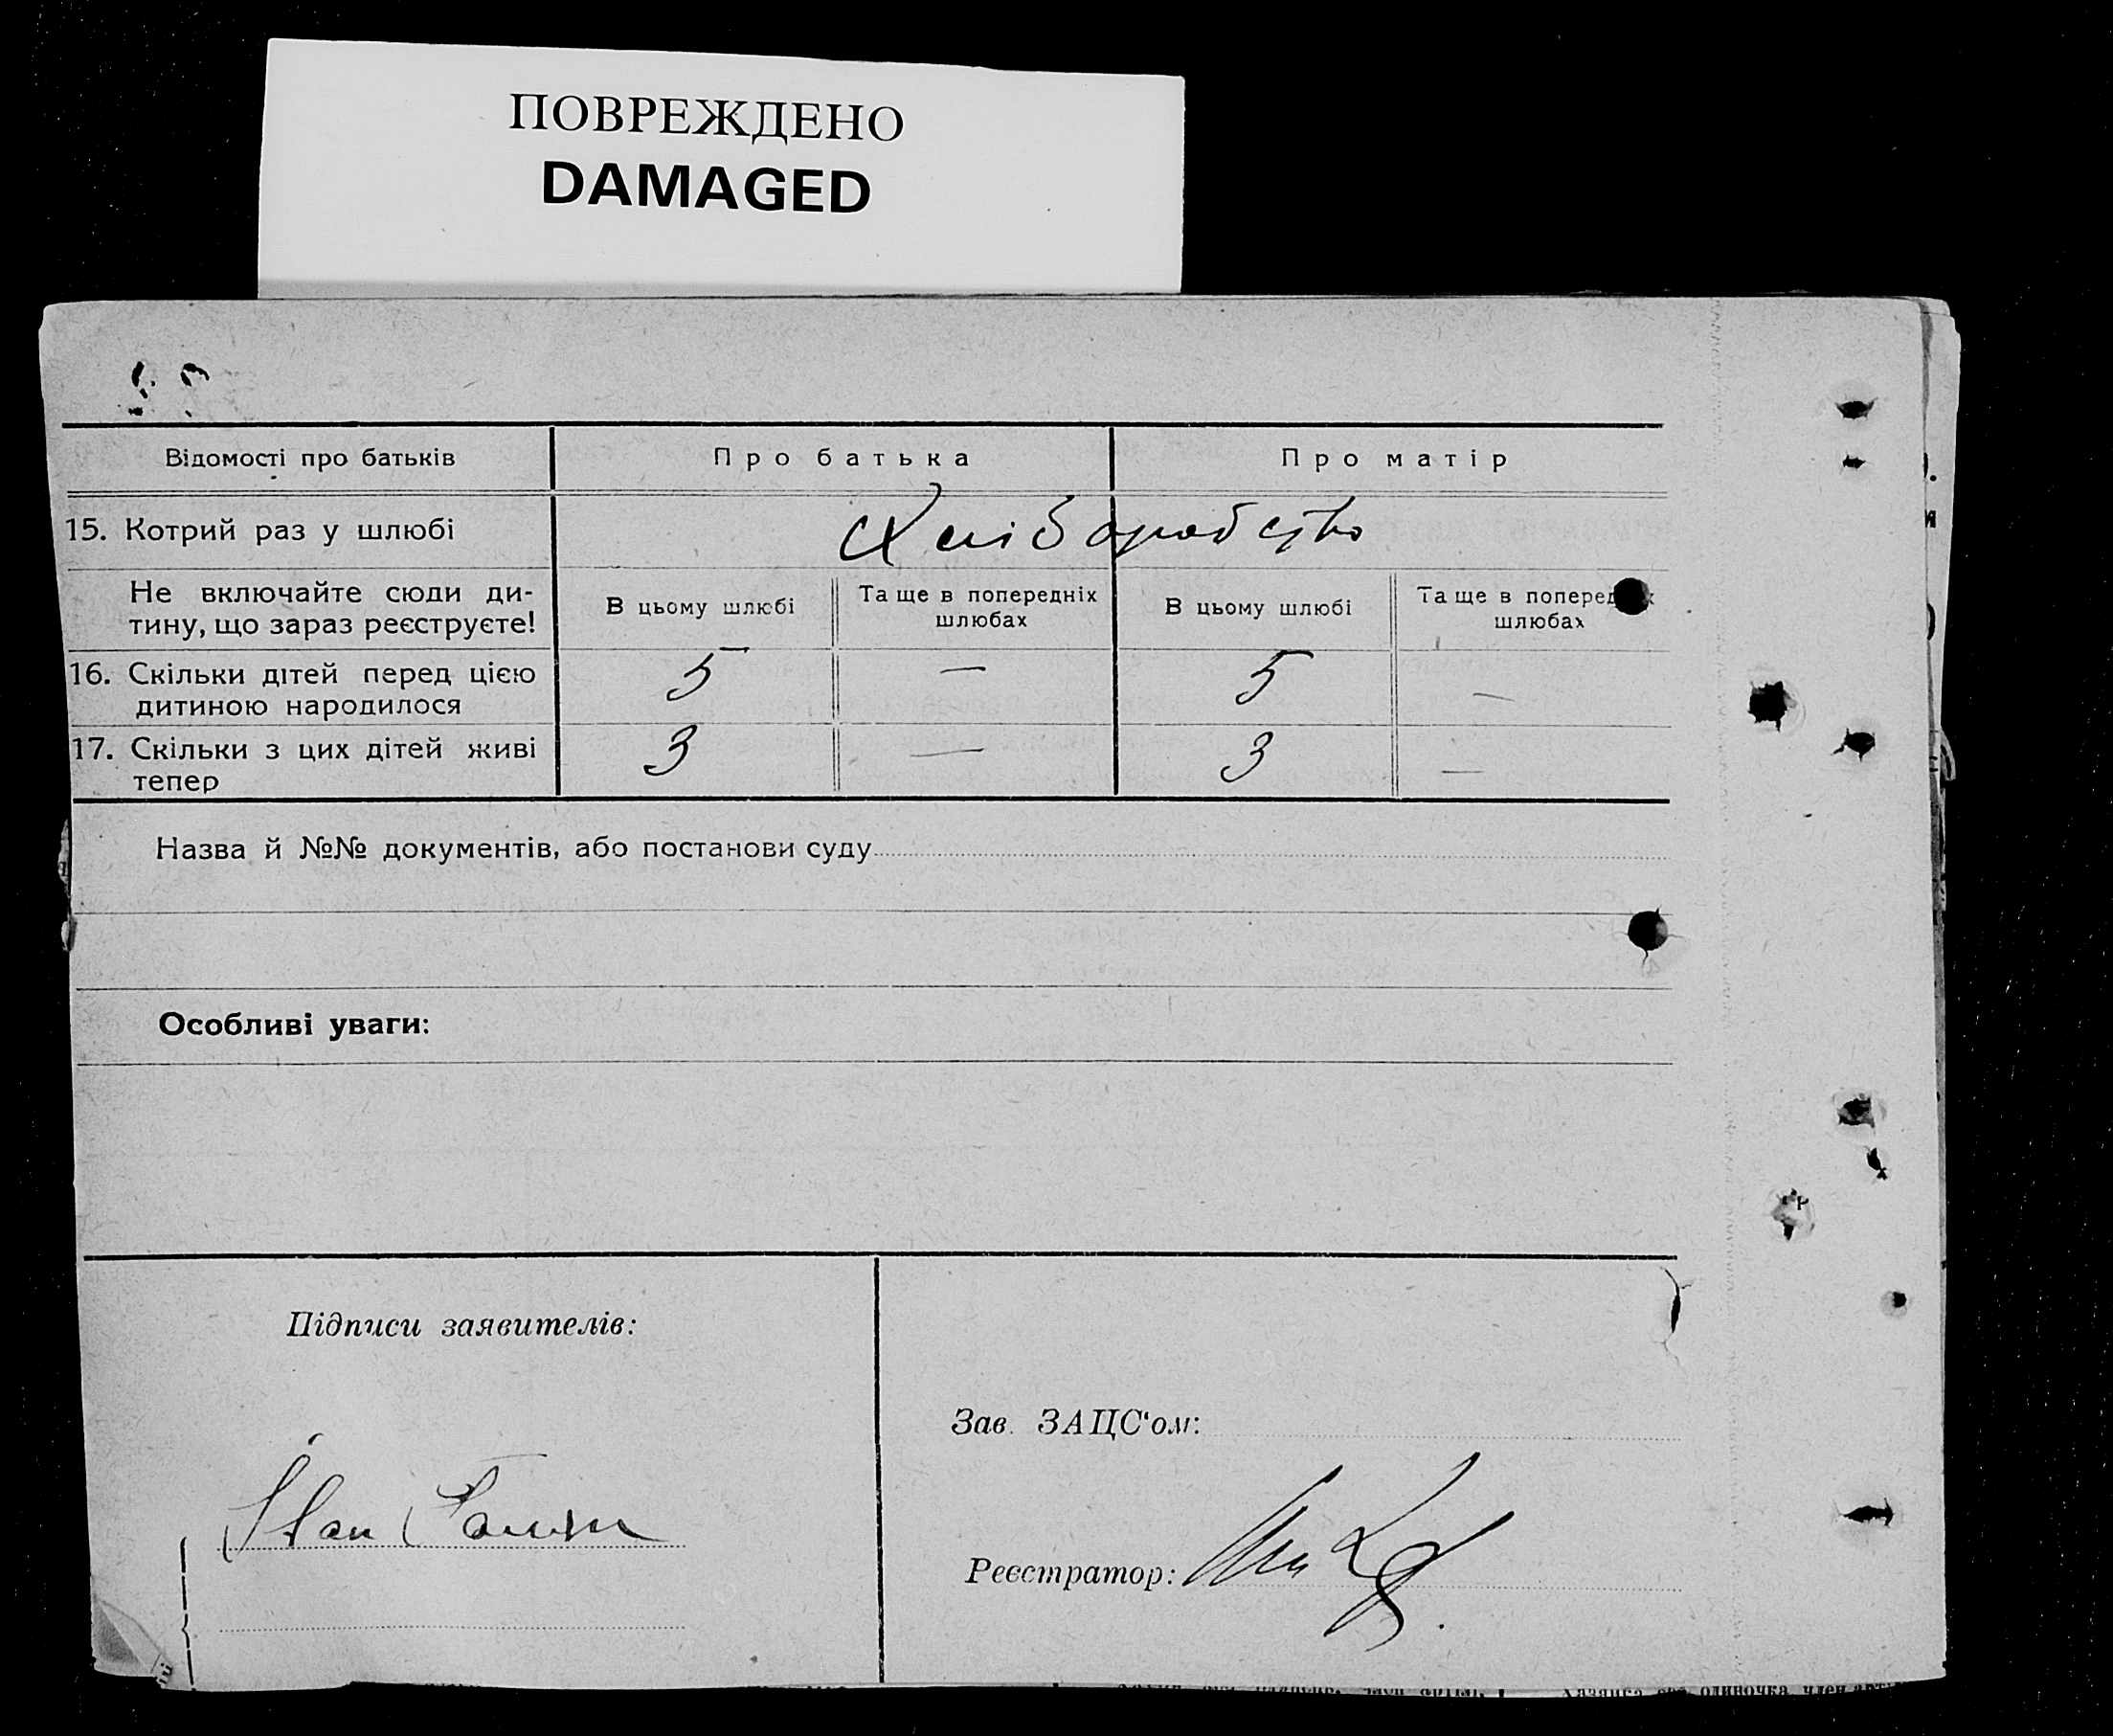 ПОВРЕЖДЕНО
DAMAGED
Відомості про батьків
Про батька
Про матір
15. Котрий раз у шлюбі
Хліборобство
Не включайте сюди ди-
тину, що зараз реєструєте!
В цьому шлюбі
Та ще в попередніх
шлюбах
В цьому шлюбі
Та ще в
шлюбах
16. Скільки дітей перед цією
дитиною народилося
5 — 5 —
17. Скільки з цих дітей живі
тепер
3 — 3 —
Назва й №№ документів, або постанови суду
Особливі уваги:
Підписи заявителів:
Зав. ЗАЦС'ом:
Реєстратор: